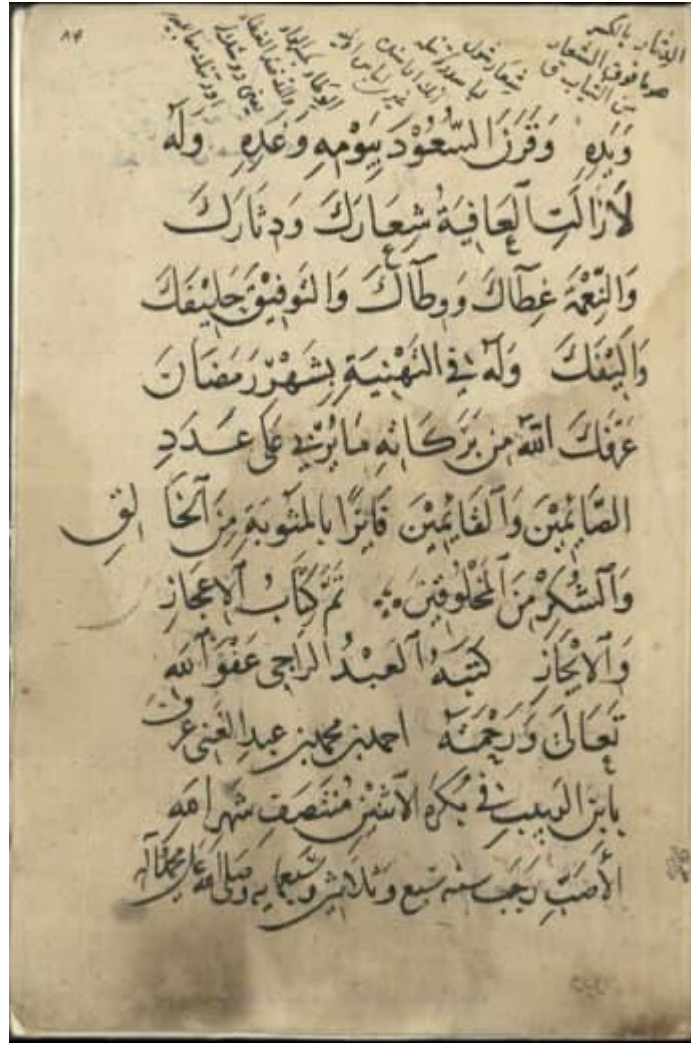 ٨٩
الدثار بالكسر
هو ما فوق الشعار
من الثياب ق
وَيَدِهِ وَقَرَنَ السُّعُوْدَ بِيَوْمِهِ وَغَدِهِ وَلَهُ
لَازَالَتِ الْعَافِيَةُ شِعَارَكَ وَدِثَارَكَ
وَالنِّعْمَةُ غِطَآكَ وَوِطَآكَ وَالتَوفِيْقُ حَلِيْفَكَ
وَاَلِيْفَكَ وَلَهُ فِي التَهْنِيَةِ بِشَهْرِ رَمَضَانَ
عَرَّفَكَ اللهُ مِن بَرَكَاتِهِ مَا يُرْبِي عَلَى عَدَدِ
الصَّايِمِيْنَ وَالْقَايِمِيْنَ فَايِزًا بِالْمَثُوبَةِ مِنَ الْخَالِقِ
وَالشُكِرْ مِنَ الْمَخْلُوقِينَ تَمَّ كِتَابُ الْاِعْجَازِ
وَالْاِيْجَازِ كَتَبَهُ الْعَبْدُ الرَاجِي عَفْوَ اللهِ
تَعَالَى وَرَحْمَتَهُ احمد بن محمد بن عبد الغنى عرف
بابن في بُكرَه الاثنيْن مُنتَصَفِ شهر الله
الأَصَبِّ رَجَب سنه سبع وثلاثين وسبعمايه وصلى الله على محمد وآله